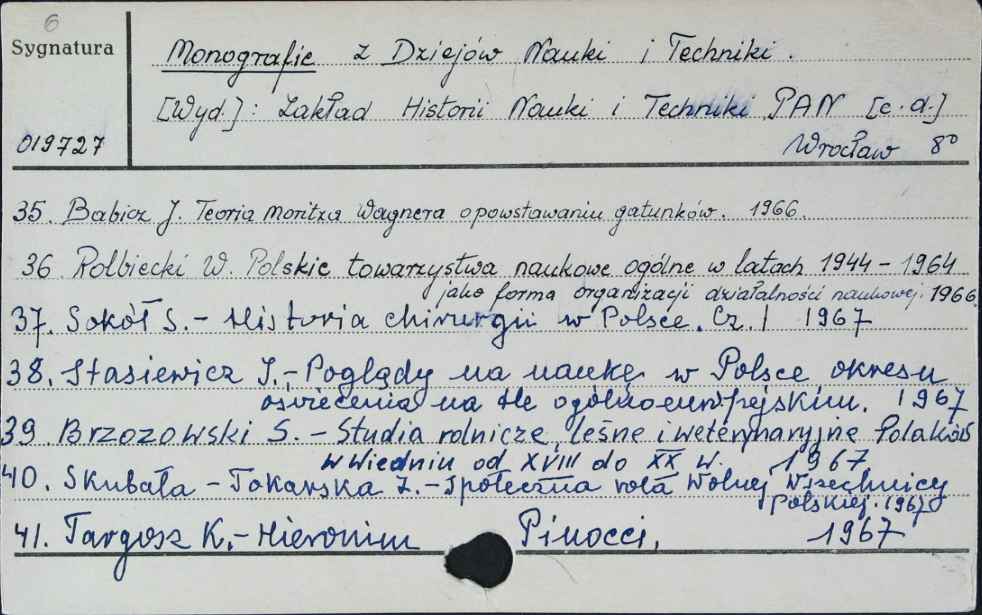 6
Sygnatura
Monografie z Dziejów Nauki i Techniki.
[Wyd.]: Zakład Historii Nauki i Techniki PAN [c.d.]
019727
Wrocław 8°
35. Babicz J. Teoria Moritza Wagnera o powstawaniu gatunków. 1966.
36. Rolbiecki W. Polskie towarzystwa naukowe ogólne w latach 1944 - 1964
jako forma organizacji działalności naukowej. 1966.
37. Sokół S. - Historia chirurgii w Polsce. Cz. I 1967
38. Stasiewicz I. - Poglądy na naukę w Polsce okresu
oświecenia na tle ogólnoeuropejskim. 1967
39. Brzozowski S. - Studia rolnicze, leśne i weterynaryjne Polaków
w Wiedniu od XVIII do XX w. 1967
40. Skubała - Tokarska Z. - Społeczna rola Wolnej Wszechnicy
Polskiej. 1967
41. Targosz K. - Hieronim Pinocci, 1967